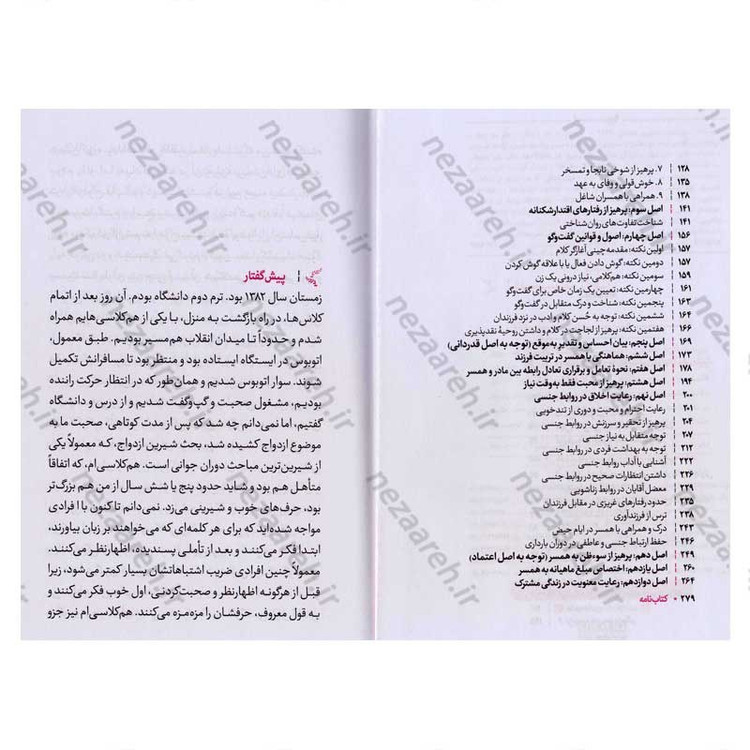 ۷. پرهیز از شوخی نابجا و تمسخر | ۱۲۸
۸. خوش‌قولی و وفای به عهد | ۱۳۵
۹. همراهی با همسران شاغل | ۱۳۸
اصل سوم: پرهیز از رفتارهای اقتدارشکنانه | ۱۴۱
شناخت تفاوت‌های روان‌شناختی | ۱۴۱
اصل چهارم: اصول و قوانین گفت‌وگو | ۱۵۶
اولین نکته: مقدمه‌چینی آغازگر کلام | ۱۵۷
دومین نکته: گوش دادن فعال یا با علاقه گوش کردن | ۱۵۷
سومین نکته: هم‌کلامی، نیاز درونی یک زن | ۱۵۹
چهارمین نکته: تعیین یک زمان خاص برای گفت‌وگو | ۱۶۱
پنجمین نکته: شناخت و درک متقابل در گفت‌وگو | ۱۶۳
ششمین نکته: توجه به حُسن کلام و ادب در نزد فرزندان | ۱۶۴
هفتمین نکته: پرهیز از لجاجت در کلام و داشتن روحیهٔ نقدپذیری | ۱۶۶
اصل پنجم: بیان احساس و تقدیر به‌موقع (توجه به اصل قدردانی) | ۱۶۹
اصل ششم: هماهنگی با همسر در تربیت فرزند | ۱۷۳
اصل هفتم: نحوهٔ تعامل و برقراری تعادل رابطه بین مادر و همسر | ۱۷۸
اصل هشتم: پرهیز از محبت فقط به وقت نیاز | ۱۹۴
اصل نهم: رعایت اخلاق در روابط جنسی | ۲۰۰
رعایت احترام و محبت و دوری از تندخویی | ۲۰۱
پرهیز از تحقیر و سرزنش در روابط جنسی | ۲۰۴
توجه متقابل به نیاز جنسی | ۲۰۷
توجه به بهداشت فردی در روابط جنسی | ۲۱۲
آشنایی با آداب روابط جنسی | ۲۲۲
داشتن انتظارات صحیح در روابط جنسی | ۲۲۶
معضل آقایان در روابط زناشویی | ۲۲۹
حدود رفتارهای غریزی در مقابل فرزندان | ۲۳۵
ترس از فرزندآوری | ۲۳۸
درک و همراهی با همسر در ایام حیض | ۲۴۳
حفظ ارتباط جنسی و عاطفی در دوران بارداری | ۲۴۶
اصل دهم: پرهیز از سوءظن به همسر (توجه به اصل اعتماد) | ۲۴۹
اصل یازدهم: اختصاص مبلغ ماهیانه به همسر | ۲۶۰
اصل دوازدهم: رعایت معنویت در زندگی مشترک | ۲۶۴
کتاب‌نامه • ۲۷۹
پیش‌گفتار
زمستان سال ۱۳۸۲ بود. ترم دوم دانشگاه بودم. آن روز بعد از اتمام
کلاس‌ها، در راه بازگشت به منزل، با یکی از هم‌کلاسی‌هایم همراه
شدم و حدوداً تا میدان انقلاب هم‌مسیر بودیم. طبق معمول،
اتوبوس در ایستگاه ایستاده بود و منتظر بود تا مسافرانش تکمیل
شوند. سوار اتوبوس شدیم و همان‌طور که در انتظار حرکت راننده
بودیم، مشغول صحبت و گپ‌وگفت شدیم و از درس و دانشگاه
گفتیم، اما نمی‌دانم چه شد که پس از مدت کوتاهی، صحبت ما به
موضوع ازدواج کشیده شد، بحث شیرین ازدواج، که معمولاً یکی
از شیرین‌ترین مباحث دوران جوانی است. هم‌کلاسی‌ام، که اتفاقاً
متأهل هم بود و شاید حدود پنج یا شش سال از من هم بزرگ‌تر
بود، حرف‌های خوب و شیرینی می‌زد. نمی‌دانم تا کنون با افرادی
مواجه شده‌اید که برای هر کلمه‌ای که می‌خواهند بر زبان بیاورند،
ابتدا فکر می‌کنند و بعد از تأملی پسندیده، اظهارنظر می‌کنند.
معمولاً چنین افرادی ضریب اشتباهاتشان بسیار کمتر می‌شود، زیرا
قبل از هرگونه اظهارنظر و صحبت‌کردنی، اول خوب فکر می‌کنند و
به قول معروف، حرفشان را مزه‌مزه می‌کنند. هم‌کلاسی‌ام نیز جزو
nezaareh.ir